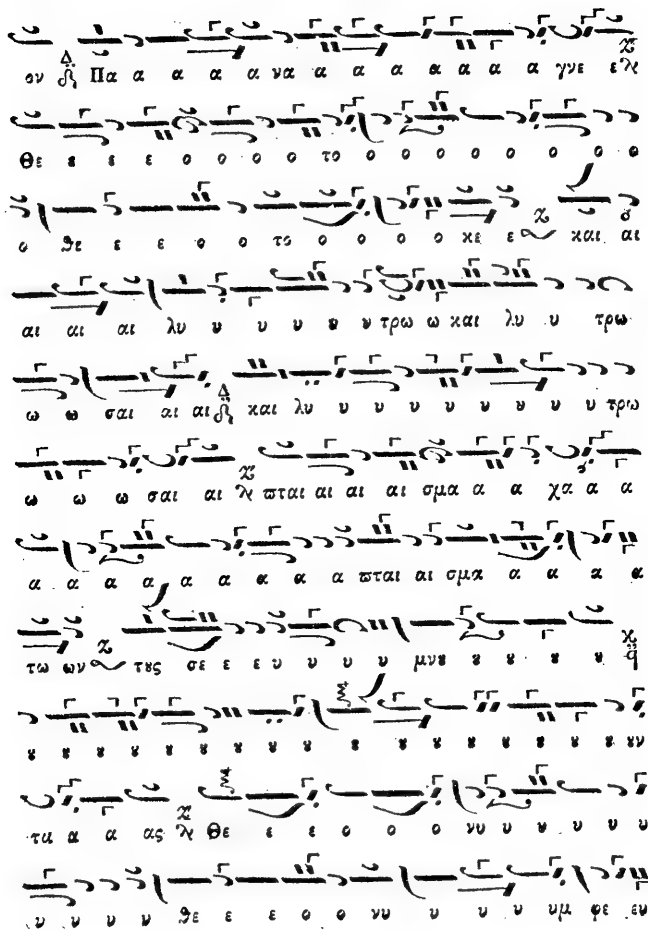 ον Πα α α α α να α α α α α α α γνε ε
Θε ε ε ε ο ο ο ο το ο ο ο ο ο ο ο ο ο
ο θε ε ε ο ο το ο ο ο ο κε ε και αι
αι αι αι λυ υ υ υ υ υ τρω ω και λυ υ τρω
ω ω σαι αι αι και λυ υ υ υ υ υ υ υ υ τρω
ω ω ω σαι αι πται αι αι αι σμα α α χα α α
α α α α α α α α α πται αι σμα α α α α
τω ων τȣς σε ε ε υ υ υ υ μνȣ ȣ ȣ ȣ ȣ
ȣ ȣ ȣ ȣ ȣ ȣ ȣ ȣ ȣ ȣ ȣ ȣ ȣ ȣ ȣν
τα α α ας Θε ε ε ο ο ο νυ υ υ υ υ υ
υ υ υ υ θε ε ε ο ο νυ υ υ υ υμ φε ευ